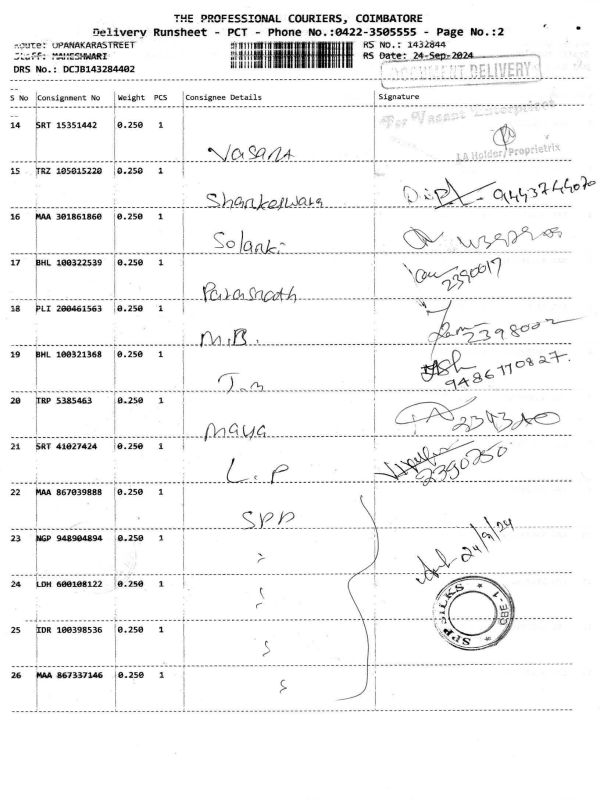 THE PROFESSIONAL COURIERS, COIMBATORE
Delivery Runsheet - PCT - Phone No.:0422-3505555 - Page No.:2
Route: OPANAKARASTREET RS No.: 1432844
Staff: MAHESHWARI RS Date: 24-Sep-2024
DRS No.: DCJB143284402 DOCUMENT DELIVERY
S No Consignment No Weight PCS Consignee Details Signature
14 SRT 15351442 0.250 1 Vasant For Vasant Enterprises
LA Holder/Proprietrix
15 TRZ 105015220 0.250 1 Shankeswara 9443744070
16 MAA 301861860 0.250 1 Solanki
17 BHL 100322539 0.250 1 Parasnath 2390017
18 PLI 200461563 0.250 1 M.B. 2398002
19 BHL 100321368 0.250 1 9486770827.
20 TRP 5385463 0.250 1 Maya
21 SRT 41027424 0.250 1 L.P 2390250
22 MAA 867039888 0.250 1 SPP
23 NGP 948904894 0.250 1 24/9/24
24 LDH 600108122 0.250 1
SPP SILKS * CBE-1 *
25 IDR 100398536 0.250 1
26 MAA 867337146 0.250 1